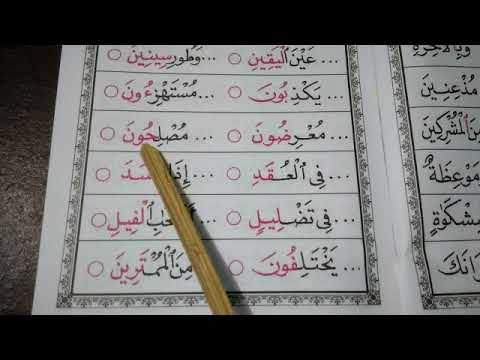 ... عَيْنَ الْيَقِينِ ○ ... وَطُورِ سِينِينَ ○
... يَكْذِبُونَ ○ ... مُسْتَهْزِءُونَ ○
... مُعْرِضُونَ ○ ... مُصْلِحُونَ ○
... فِى الْعُقَدِ ○ ... إِذَا حَسَدَ ○
... فِى تَضْلِيلٍ ○ الْفِيلِ ○
... يَخْتَلِفُونَ ○ مِنَ الْمُمْتَرِينَ ○
مُذْعِنِينَ
مِنَ الْمُشْرِكِينَ
مَوْعِظَةٌ